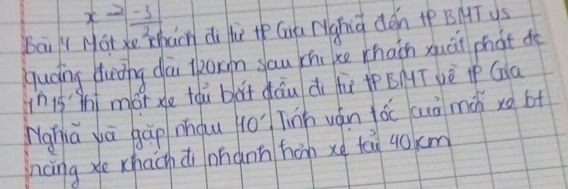 x = -3/2
Bài 4 Một xe khách đi từ tp Gia Nghĩa đến tp BMT Us
quãng đường dài 120km sau khi xe khách xuất phát đc
1h15' thì một xe tải bắt đầu đi từ tp BMT về tp Gia
Nghĩa và gặp nhau 40'. Tính vận tốc của mỗi xe bt
rằng xe khách đi nhanh hơn xe tải 40km